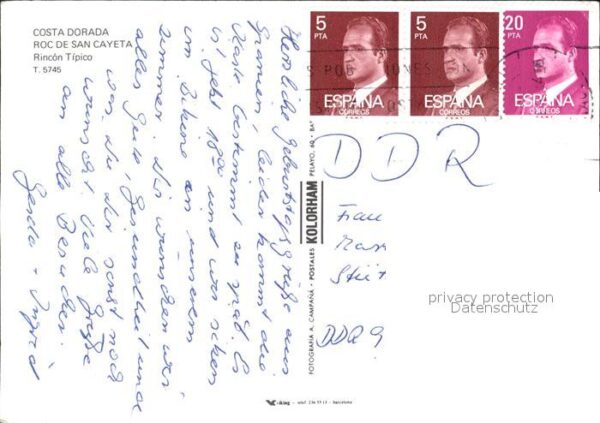 COSTA DORADA
ROC DE SAN CAYETA
Rincón Típico
T. 5745
5
PTA
ESPAÑA
CORREOS
5
PTA
ESPAÑA
CORREOS
20
PTA
ESPAÑA
CORREOS
Herzliche Geburtstagsgrüße aus
Spanien, leider kommt die
Karte bestimmt zu spät. Es
ist jetzt 18 00 und wir sitzen
im
in unserem
Zimmer. Wir wünschen dir
alles Gute, Gesundheit und
was du dir sonst noch
wünscht. Viele Grüße
an alle Besucher.
Gerda + Ingrid
DDR
Frau
DDR 9
FOTOGRAFIA A. CAMPAÑA · POSTALES KOLORHAM PELAYO, 60 · BA
viking
Barcelona
privacy protection
Datenschutz